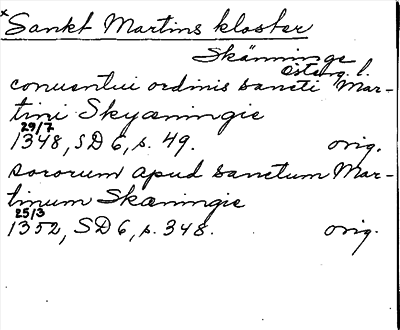 *Sankt Martins kloster
Skänninge
Österg. l.
conuentui ordinis sancti Mar-
tini Skyæningie
29/7
1348, SD 6, s. 49. orig.
sororum apud sanctum Mar-
tinum Skæningie
25/3
1352, SD 6, s. 348. orig.